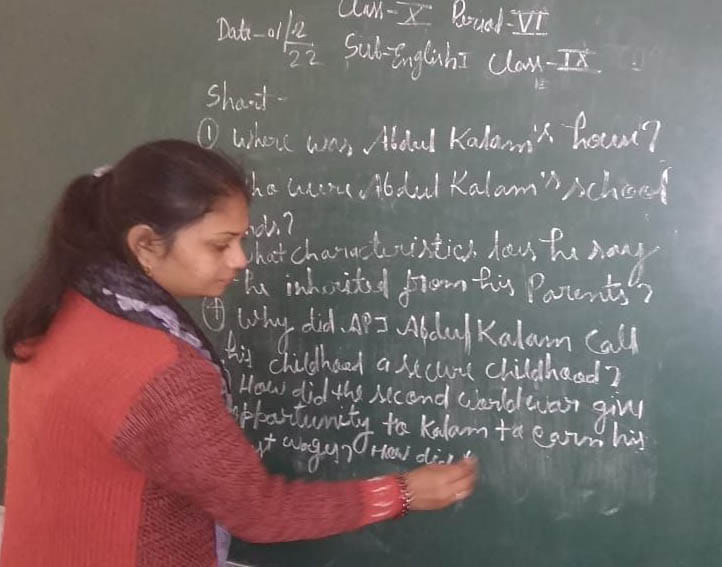 Class-X Period-VI
Date-01/12/22 Sub-English I Class-IX
Short-
① Where was Abdul Kalam's house?
ho were Abdul Kalam's school
nds?
hat characteristics does he say
he inherited from his Parents?
④ Why did APJ Abdul Kalam call
his childhood a secure childhood?
How did the second world war give
opportunity to Kalam to earn his
st wages? How did